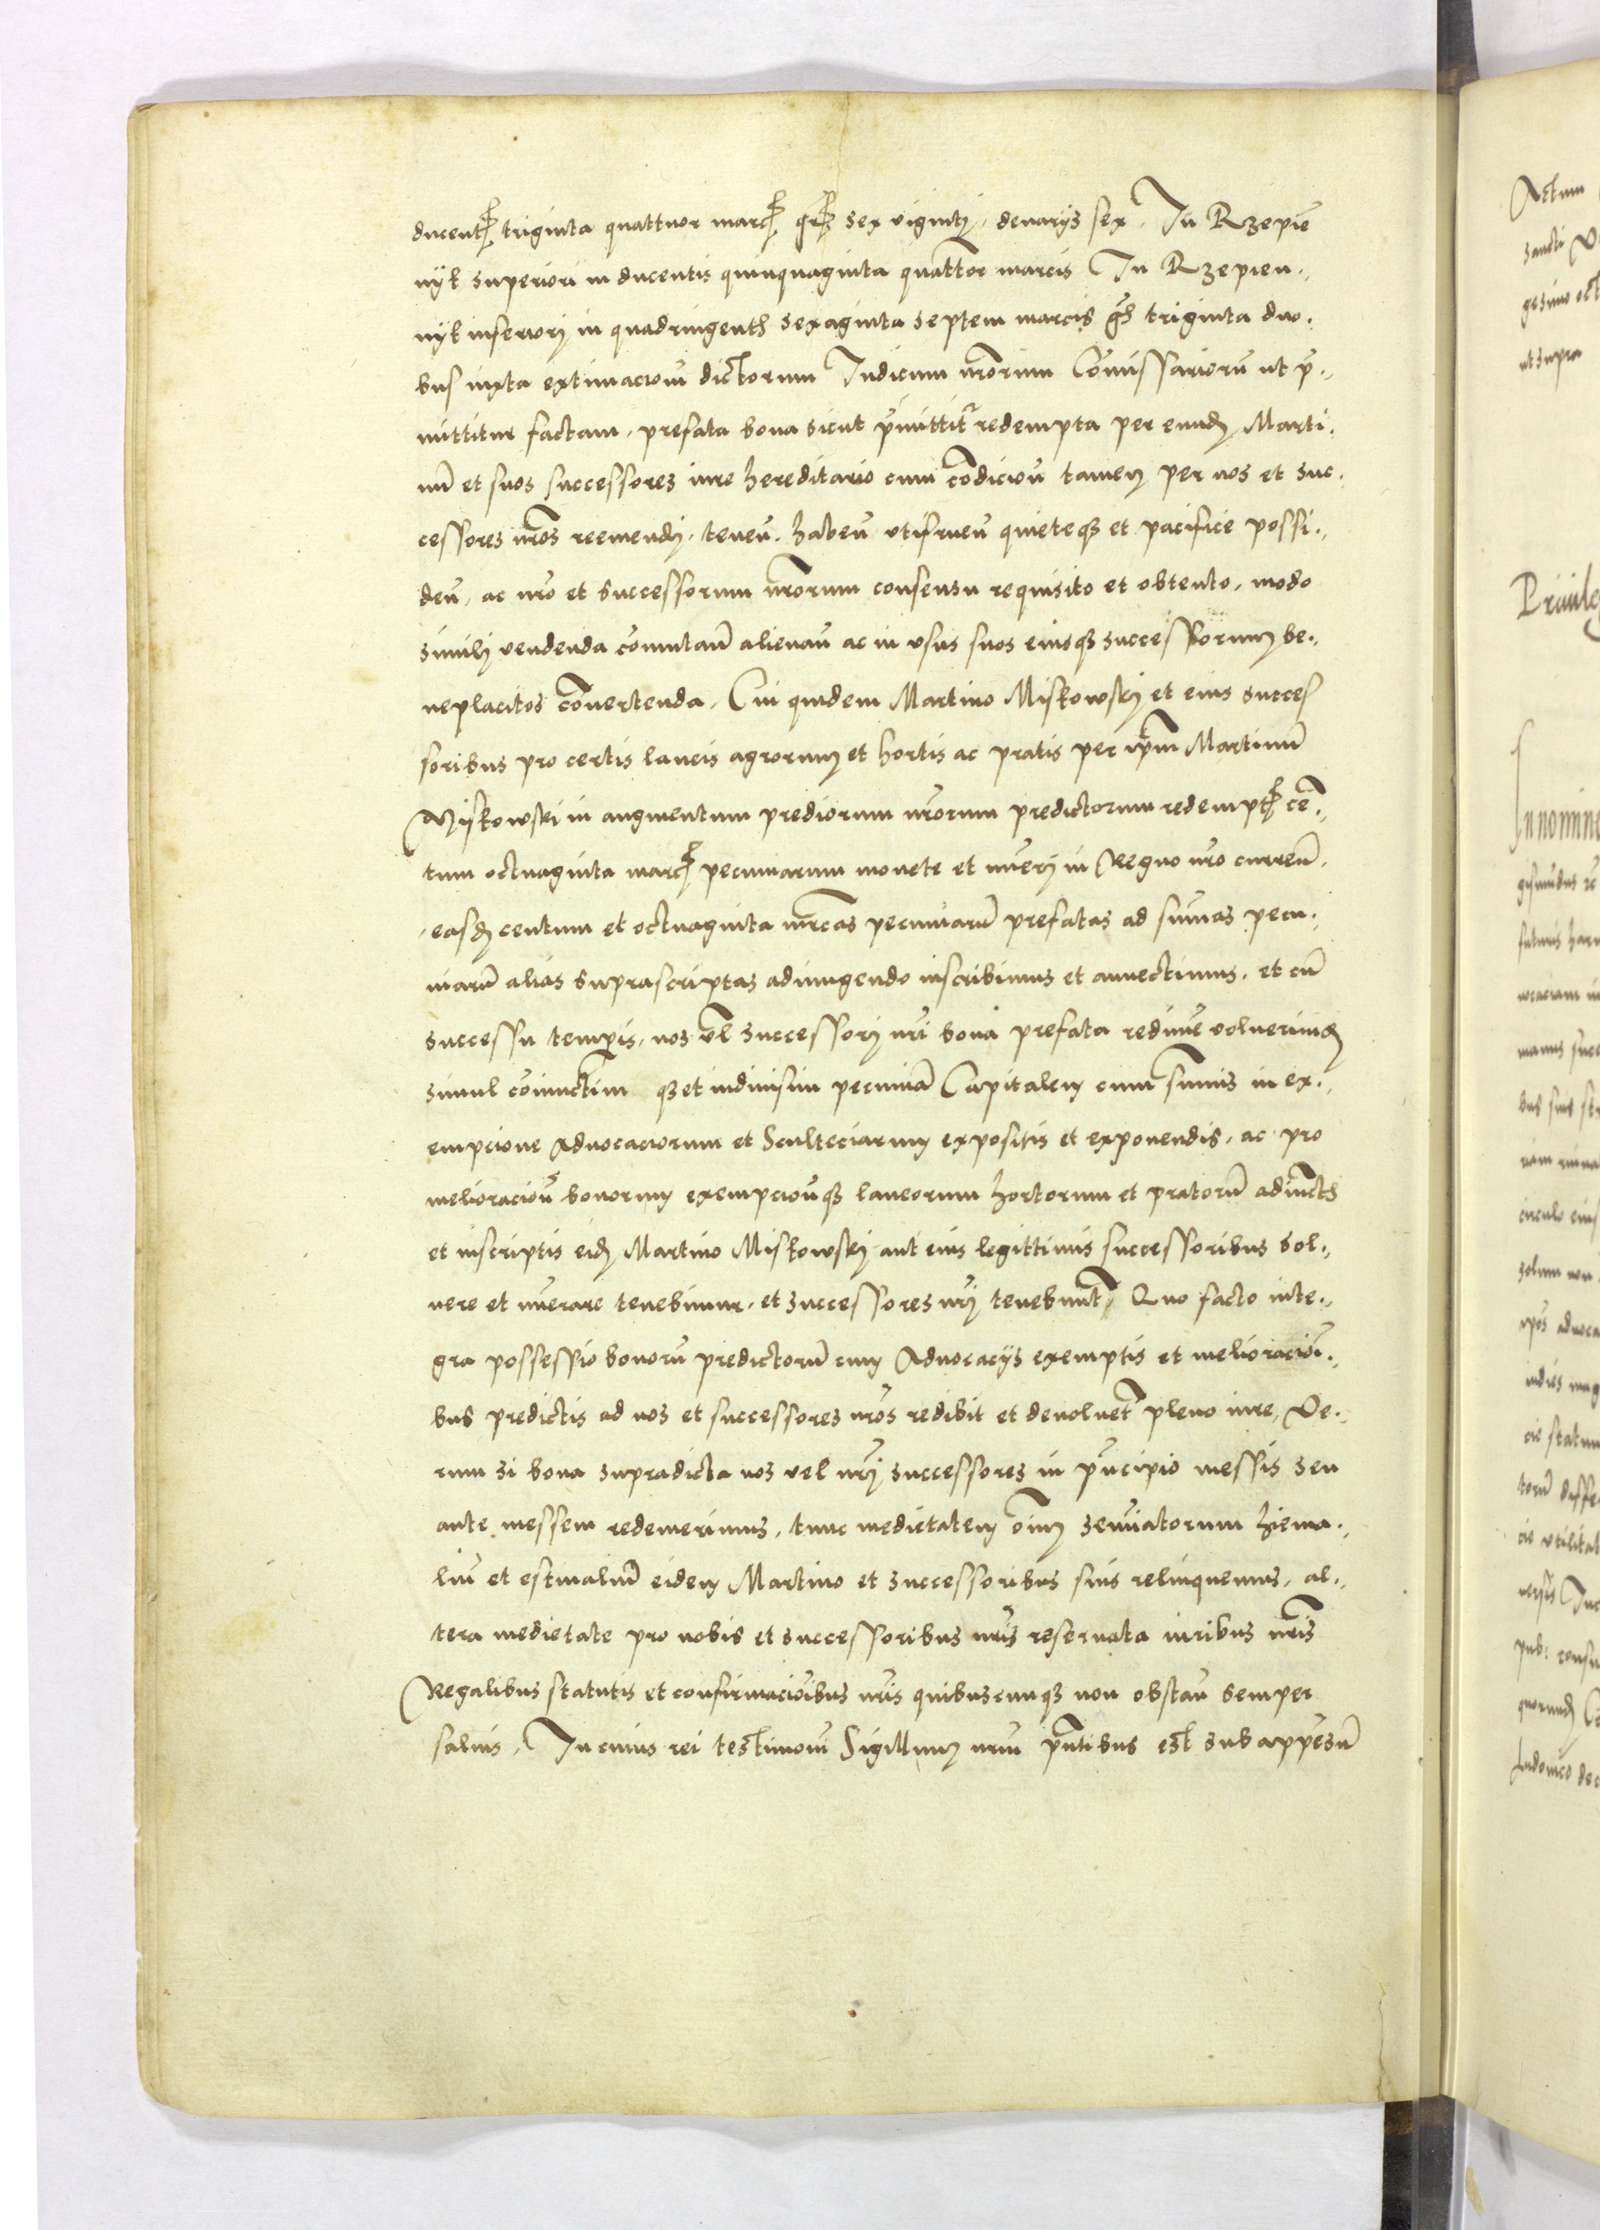 ducent triginta quattuor marc gr sex viginti, denarys sex, In Rzepie
nyk superiori in ducentis quinquaginta quattor marcis In Rzepien,
nyk inferiori in quadringent sexaginta septem marcis gr triginta duo,
bus iuxta extimacioni dictorum Iudicum nrorum Comissariorum ut p̄,
mittitur factam, prefata bona sicut p̄mittitr redempta per eund Marti,
nū et suos successores iure hereditario cum condicion tamen per nos et suc,
cessores nros reemendi, tenen, haben utifruen quieteq et pacifice possi,
den, ac nro et successorum nrorum consensu requisito et obtento, modo
simili vendenda comutan alienan ac in usus suos eiusq successorum be,
neplacitos convertenda, Cui quidem Martino Miskowski et eius succes
soribus pro certis laneis agrorum et hortis ac pratis per ipm Martinū
Myskowski in augmentum prediorum nrorum predictorum redempt cen,
tum octuaginta marc pecuniarum monete et nueri in Regno nro curren,
easd centum et octuaginta mrcas pecuniarū prefatas ad sumas pecu,
niarū alias suprascriptas adiungendo inscribimus et annectimus, et cū
successu tempis, nos vl successori nri bona prefata redime voluerim
simul coniunctim q et indivisim pecuniā Capitalem cum sumis in ex,
empcione Advocaciorum et Sculteciarum expositis et exponendis, ac pro
melioracion bonorum exempcionq laneorum hortorum et pratorū adiunct
et inscriptis eid Martino Miskowski aut eius legittimis successoribus sol,
vere et nuerare tenebimur, et successores nri tenebunt, Quo facto inte,
gra possessio bonorū predictorū cum Advocacys exemptis et melioracioni,
bus predictis ad nos et successores nros redibit et devoluet pleno iure, Ve,
rum si bona supradicta nos vel nri successores in pncipio messis seu
ante messem redemerimus, tunc medietatem oim seminatorum hiema,
lium et estivalium eidem Martino et successoribus suis relinquemus, al,
tera medietate pro nobis et successoribus nris reservata iuribus nris
Regalibus statutis et confirmacionibus nris quibuscunq non obstan semper
salvis, In cuius rei testimoni Sigillum nrum pntibus est subappensū
Actum
sancti
gesimo oct
ut supra
Privileg
In nomine